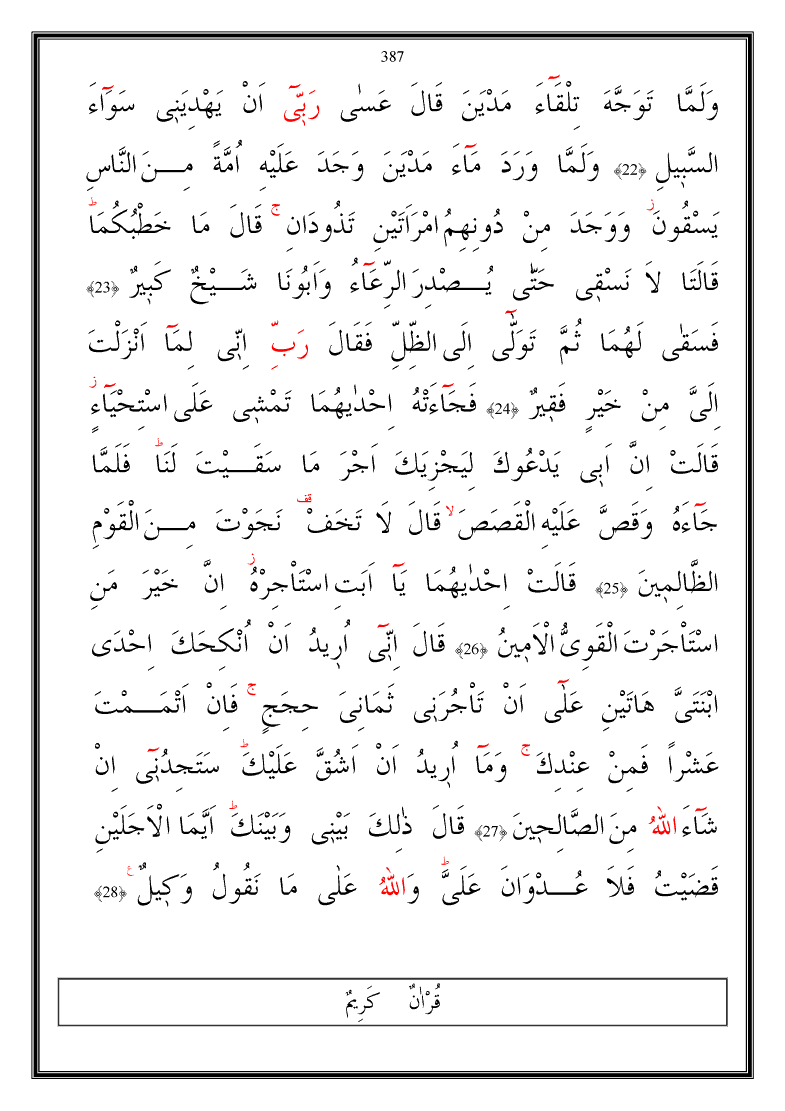 387
وَلَمَّا تَوَجَّهَ تِلْقَٓاءَ مَدْيَنَ قَالَ عَسٰى رَبّٖٓى اَنْ يَهْدِيَنٖى سَوَٓاءَ
السَّبٖيلِ ﴿22﴾ وَلَمَّا وَرَدَ مَٓاءَ مَدْيَنَ وَجَدَ عَلَيْهِ اُمَّةً مِـــنَ النَّاسِ
يَسْقُونَۘ وَوَجَدَ مِنْ دُونِهِمُ امْرَاَتَيْنِ تَذُودَانِۚ قَالَ مَا خَطْبُكُمَاؕ
قَالَتَا لاَ نَسْقٖى حَتّٰى يُـــصْدِرَ الرِّعَٓاءُ وَاَبُونَا شَـــيْخٌ كَبٖيرٌ ﴿23﴾
فَسَقٰى لَهُمَا ثُمَّ تَوَلّٰٓى اِلَى الظِّلِّ فَقَالَ رَبِّ اِنّٖى لِمَٓا اَنْزَلْتَ
اِلَىَّ مِنْ خَيْرٍ فَقٖيرٌ ﴿24﴾ فَجَٓاءَتْهُ اِحْدٰيهُمَا تَمْشٖى عَلَى اسْتِحْيَٓاءٍؗ
قَالَتْ اِنَّ اَبٖى يَدْعُوكَ لِيَجْزِيَكَ اَجْرَ مَا سَقَـــيْتَ لَنَاؕ فَلَمَّا
جَٓاءَهُ وَقَصَّ عَلَيْهِ الْقَصَصَۙ قَالَ لَا تَخَفْࣞ نَجَوْتَ مِـــنَ الْقَوْمِ
الظَّالِمٖينَ ﴿25﴾ قَالَتْ اِحْدٰيهُمَا يَٓا اَبَتِ اسْتَاْجِرْهُؗ اِنَّ خَيْرَ مَنِ
اسْتَاْجَرْتَ الْقَوِىُّ الْاَمٖينُ ﴿26﴾ قَالَ اِنّٖٓى اُرٖيدُ اَنْ اُنْكِحَكَ اِحْدَى
ابْنَتَىَّ هَاتَيْنِ عَلٰٓى اَنْ تَاْجُرَنٖى ثَمَانِىَ حِجَجٍۚ فَاِنْ اَتْمَـــمْتَ
عَشْراً فَمِنْ عِنْدِكَۚ وَمَٓا اُرٖيدُ اَنْ اَشُقَّ عَلَيْكَؕ سَتَجِدُنٖٓى اِنْ
شَٓاءَ اللّٰهُ مِنَ الصَّالِحٖينَ ﴿27﴾ قَالَ ذٰلِكَ بَيْنٖى وَبَيْنَكَؕ اَيَّمَا الْاَجَلَيْنِ
قَضَيْتُ فَلاَ عُـــدْوَانَ عَلَىَّؕ وَاللّٰهُ عَلٰى مَا نَقُولُ وَكٖيلٌ ۧ ﴿28﴾
قُرْاٰنٌ كَرٖيمٌ